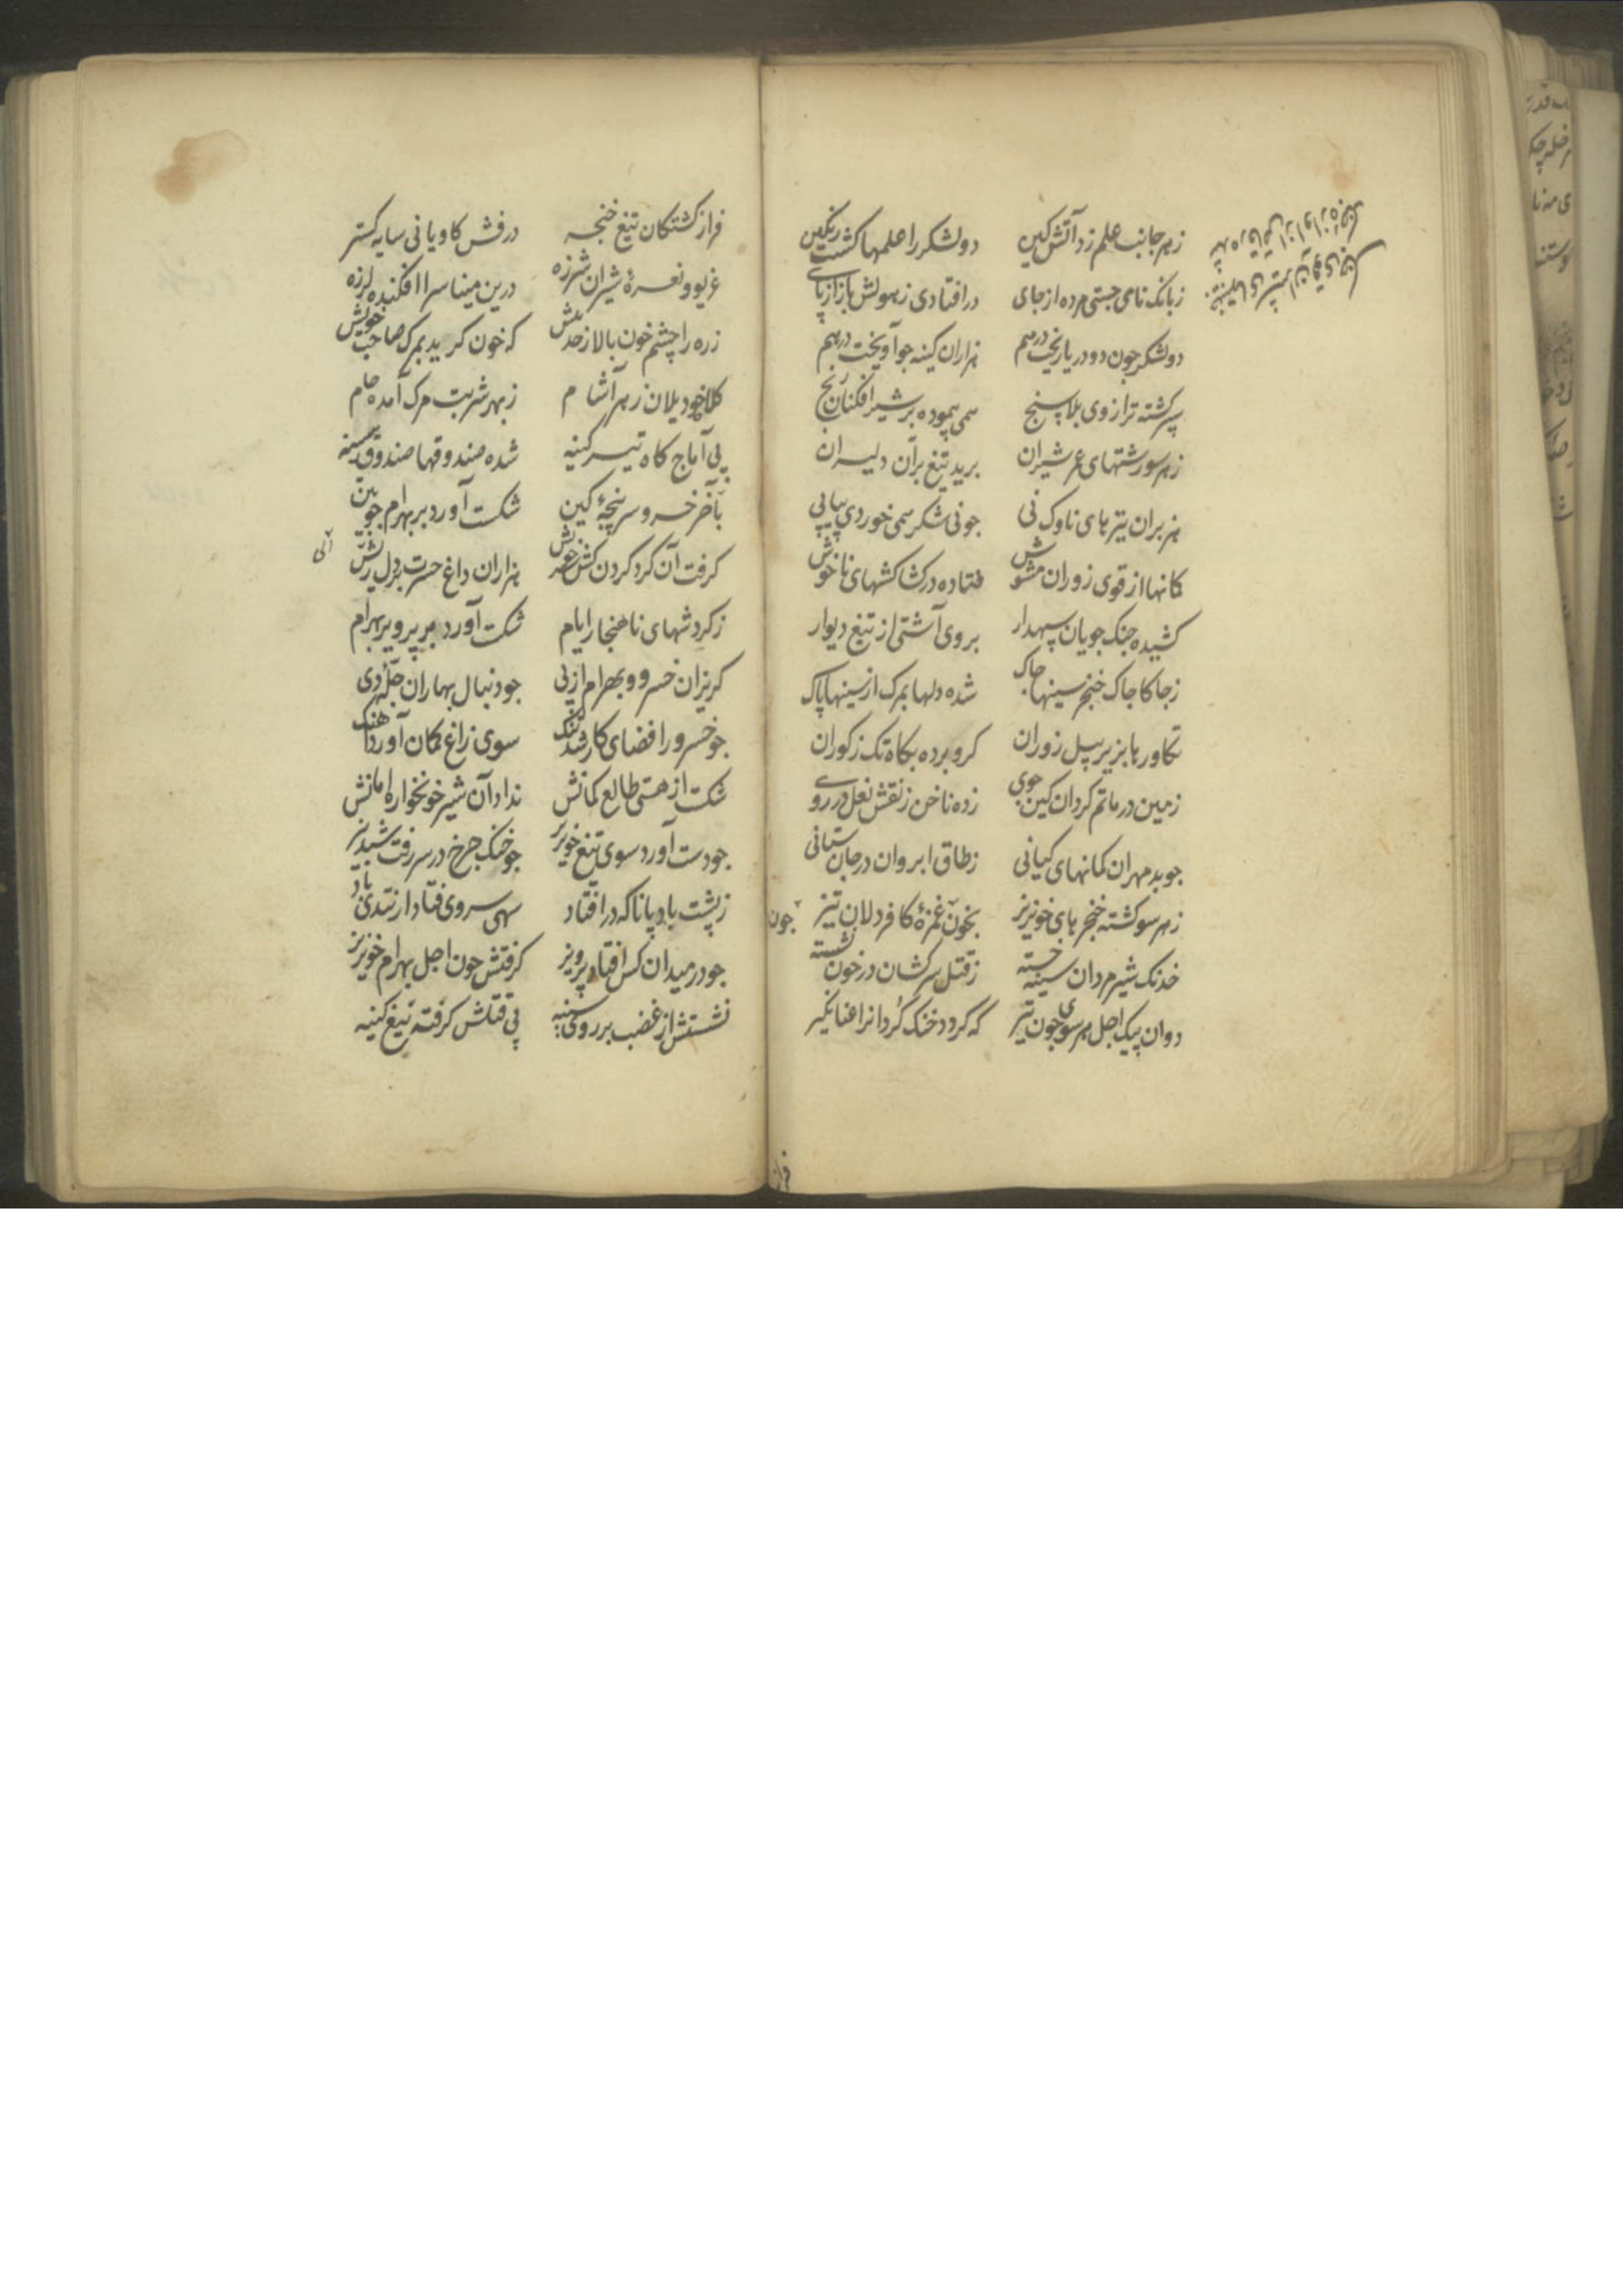 زهر جانب علم زد آتش کین دو لشکر را علمها کشت رنکین
زبانک نای جستی مرده از جای در افتادی زهولش باز از پای
دو لشکر چون دو دریا ریخت درهم هزاران کینه جو آویخت درهم
سپر کشته ترازوی بلا سنج همی پیموده بر شیر افکنان رنج
زهر سو رشتهای عمر شیران برید تیغ بران دلیران
هزبران تیرهای ناوک نی جو نی شکر همی خوردی پیاپی
کمانها از قوی زوران مشوش فتاده در کشاکشهای ناخوش
کشیده جنک جویان سپهدار بروی آشتی از تیغ دیوار
زجاکا جاک خنجر سینها جاک شده دلها بمرک از سینها پاک
تکاورها بزیر پیل زوران کرو برده بکاه تک زکوران
زمین در ماتم کردان کین جوی زده ناخن زنقش نعل در روی
جو بد مهران کمانهای کیانی زطاق ابروان در جان ستانی
زهر سو کشته خنجرهای خونریز بخون غمزهٔ کافر دلان تیز
جون
خدنک شیر مردان سینه خسته زقتل سرکشان در خون نشسته
دوان پیک اجل هر سوی جون تیر که کرود خنک کردانرا عنانکیر
فراز کشتکان تیغ خنجر درفش کاویانی سایه کستر
غریو و نعرهٔ شیران شرزه درین مینا سرا افکنده لرزه
زره را چشم خون بالا زحد بیش که خون کرید بمرک صاحب خویش
کلاه خود یلان زهر آشام زبهر شربت مرک آمده جام
پی آماج کاه تیر کینه شده صندوقها صندوق سینه
بآخر خسرو سرپنجهٔ کین شکست آورد بر بهرام جوبین
کرفت آن کرد کردن کش هزاران داغ حسرت بر دل ریش
زکردشهای ناهنجار ایام شکست آورد بر پرویز بهرام
کریزان خسرو و بهرام از پی جو دنبال بهاران حمله دی
جو خسرو را فضای کار شد تنک سوی زاغ کمان آورد آهنک
شکست از هستی طالع کمانش نداد آن شیر خونخواره امانش
جو دست آورد سوی تیغ خونریز جو خنک جرخ در سر رفت شبدیز
زپشت باد پا ناکه در افتاد سهی سروی فتاد از تندی باد
جو در میدان کس افتاد پرویز کرفتش جون اجل بهرام خونریز
نشستش از غضب بر روی سینه پی قتلش کرفته تیغ کینه